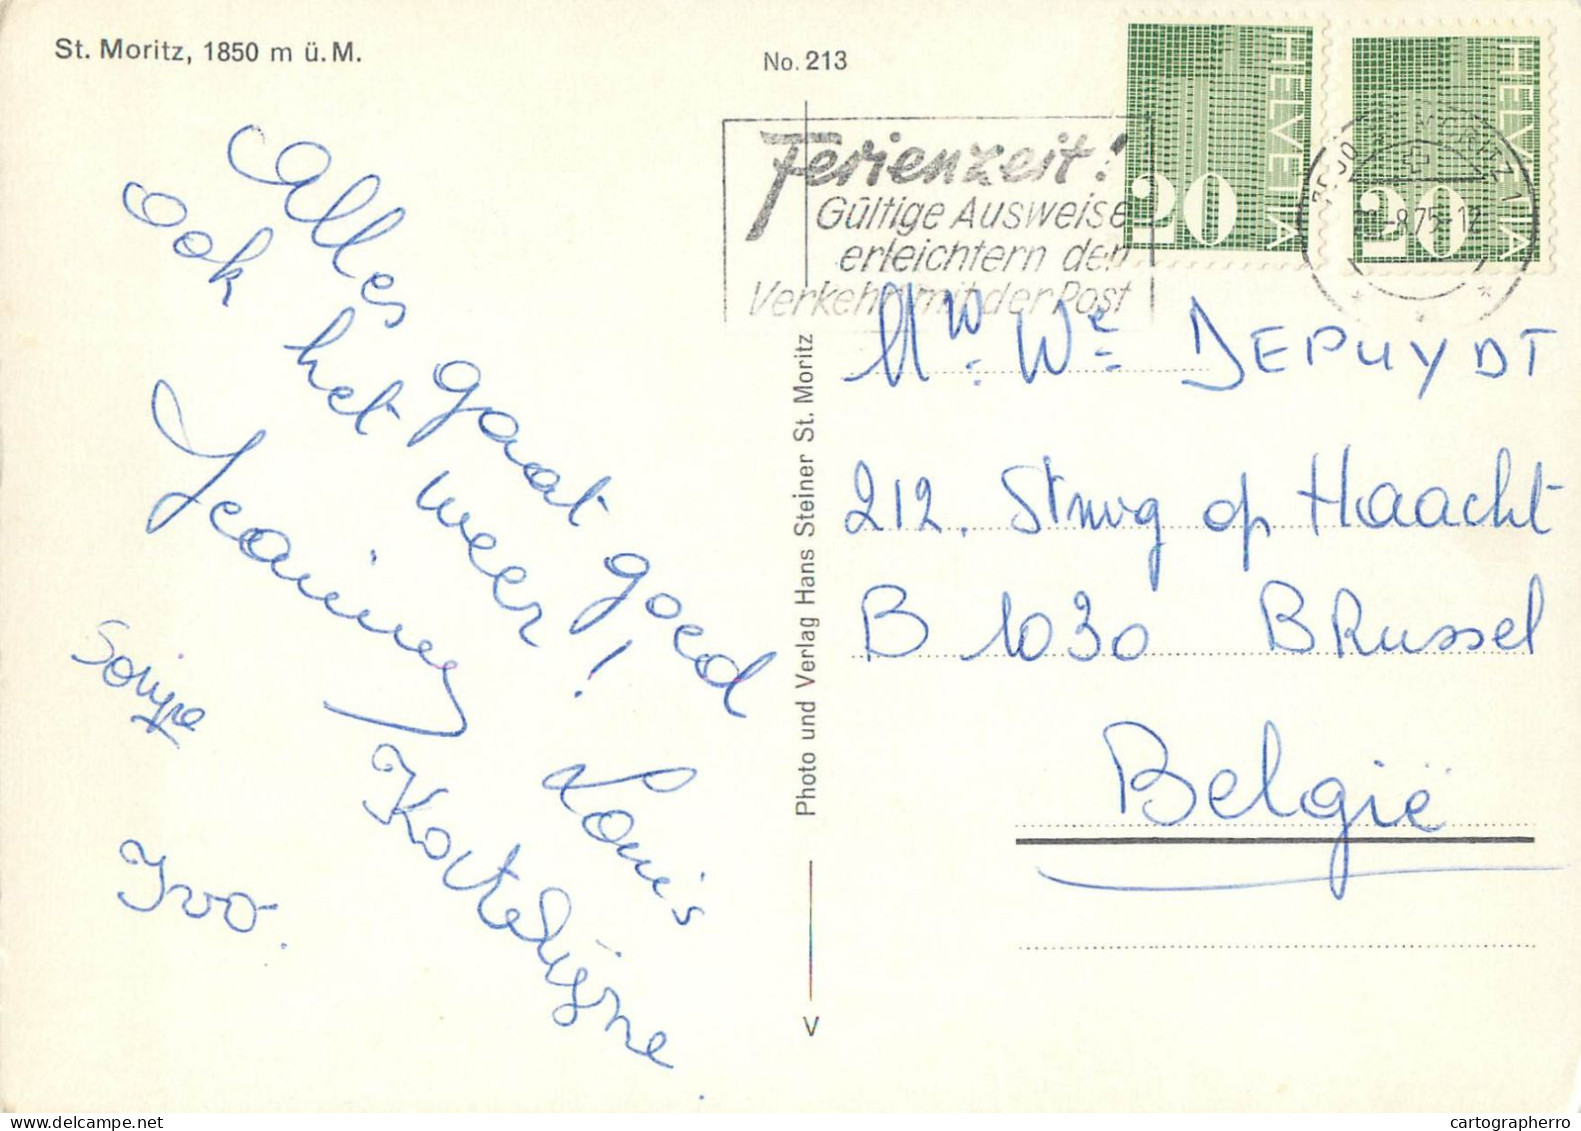 St. Moritz, 1850 m ü. M.
No. 213
Ferienzeit!
Gültige Ausweise
erleichtern den
Verkehr mit der Post
HELVETIA
20
HELVETIA
20
-8.75-12
Alles gaat goed
ook het weer!
Jeanine Louis
Sonja Kortelijne.
Ivo.
Photo und Verlag Hans Steiner St. Moritz
V
Mw. We DEPUYDT
212. Stnwg op Haacht
B 1030 BRussel
België
https://www.delcampe.net
cartographerro